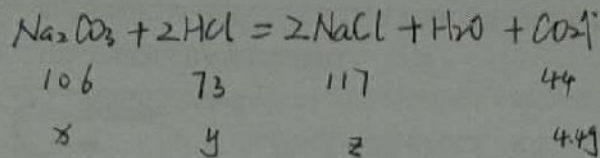 Na₂CO₃ + 2HCl = 2NaCl + H₂O + CO₂↑
106 73 117 44
x y z 4.4g